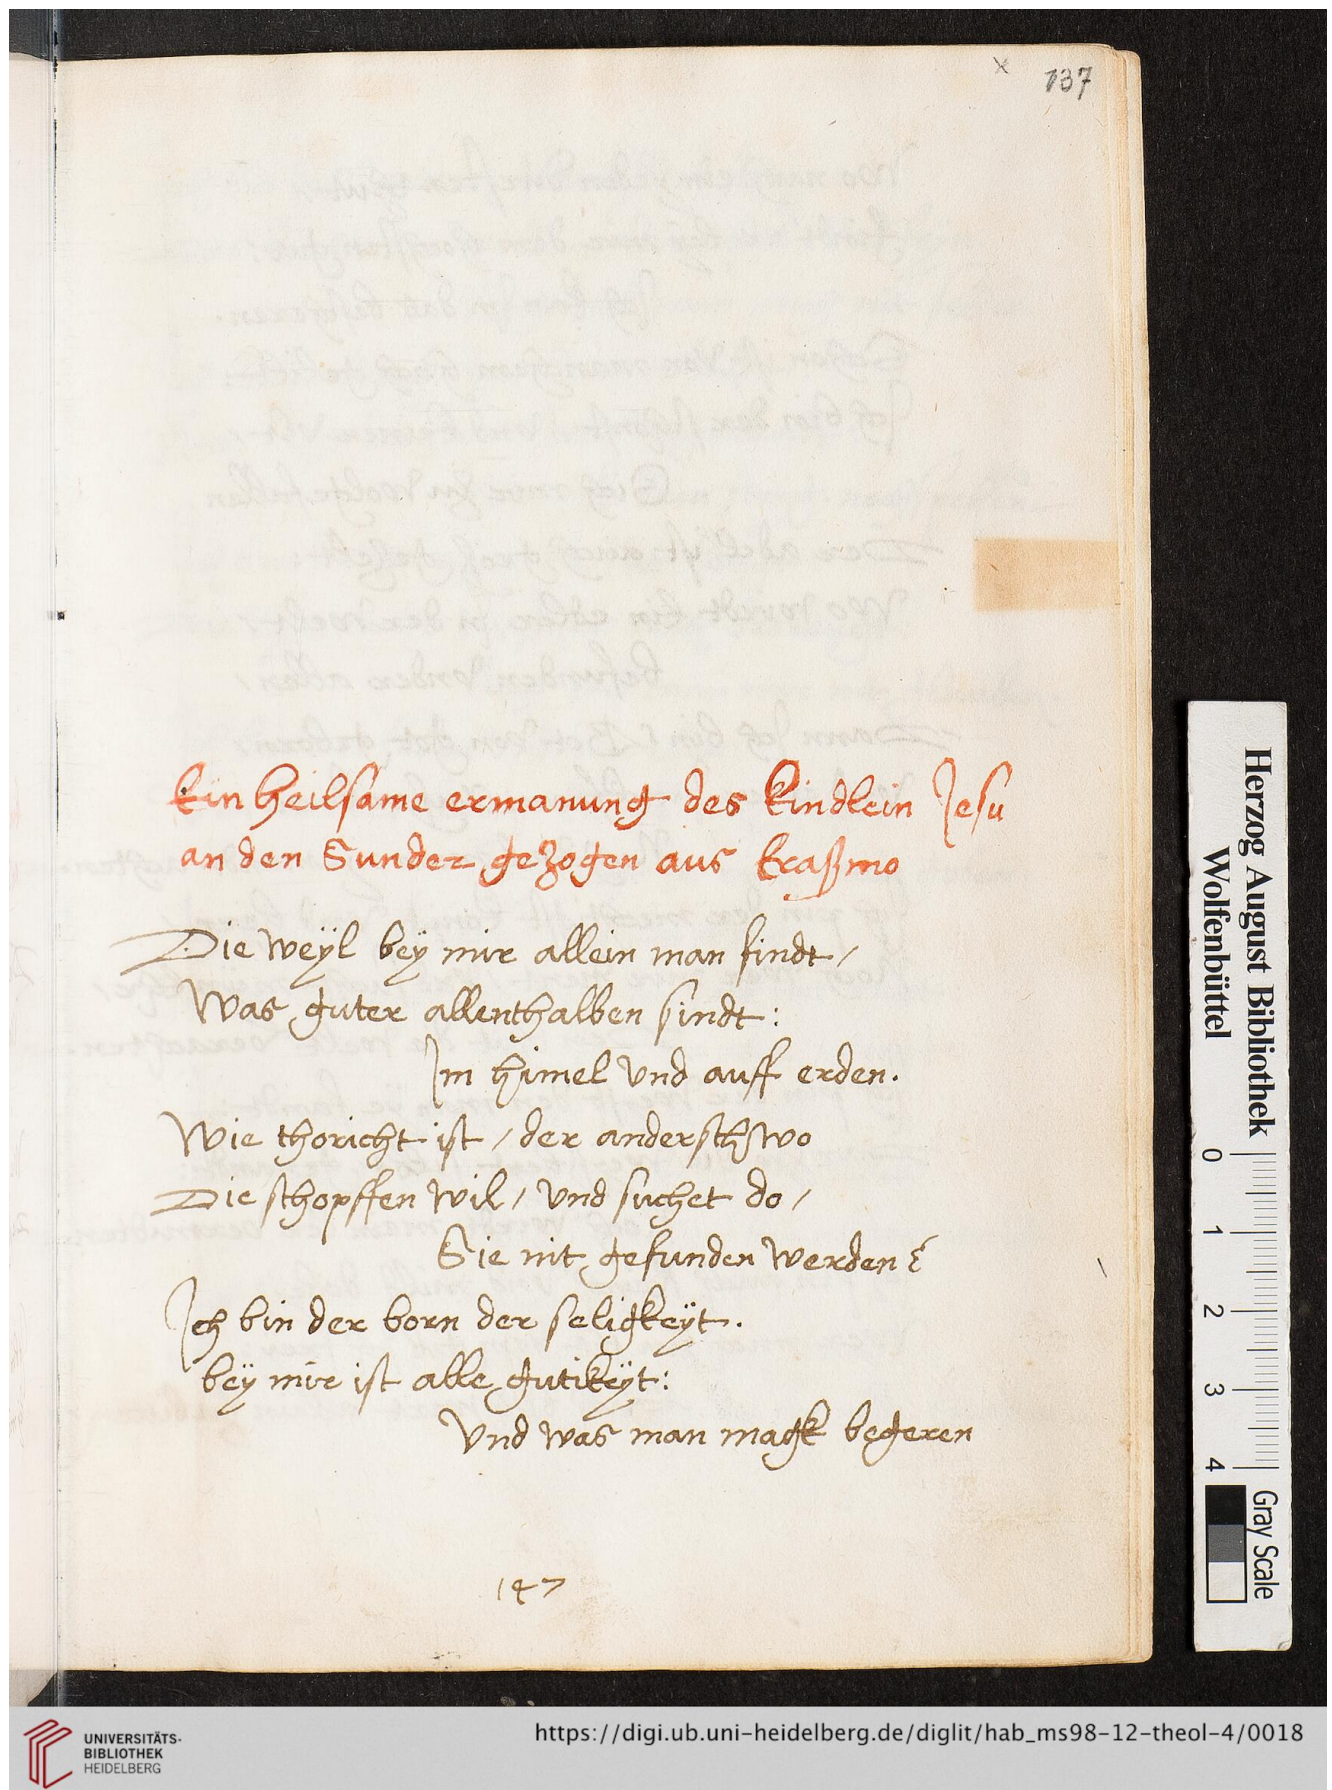 137
Ein heilsame ermanung des Kindlein Jesu
an den Sunder gezogen aus Eraßmo
Die weÿl beÿ mir allein man findt /
Was guter allenthalben sindt:
Im himel Vnd auff erden.
Wie thoricht ist / der anderschwo
Die schopffen wil / Vnd suchet do /
Sie nit gefunden werden?
Ich bin der born der seligkeÿt.
beÿ mir ist alle gutikeÿt:
Vnd was man magk begeren
147
Herzog August Bibliothek
Wolfenbüttel
0 1 2 3 4
Gray Scale
UNIVERSITÄTS-
BIBLIOTHEK
HEIDELBERG
https://digi.ub.uni-heidelberg.de/diglit/hab_ms98-12-theol-4/0018